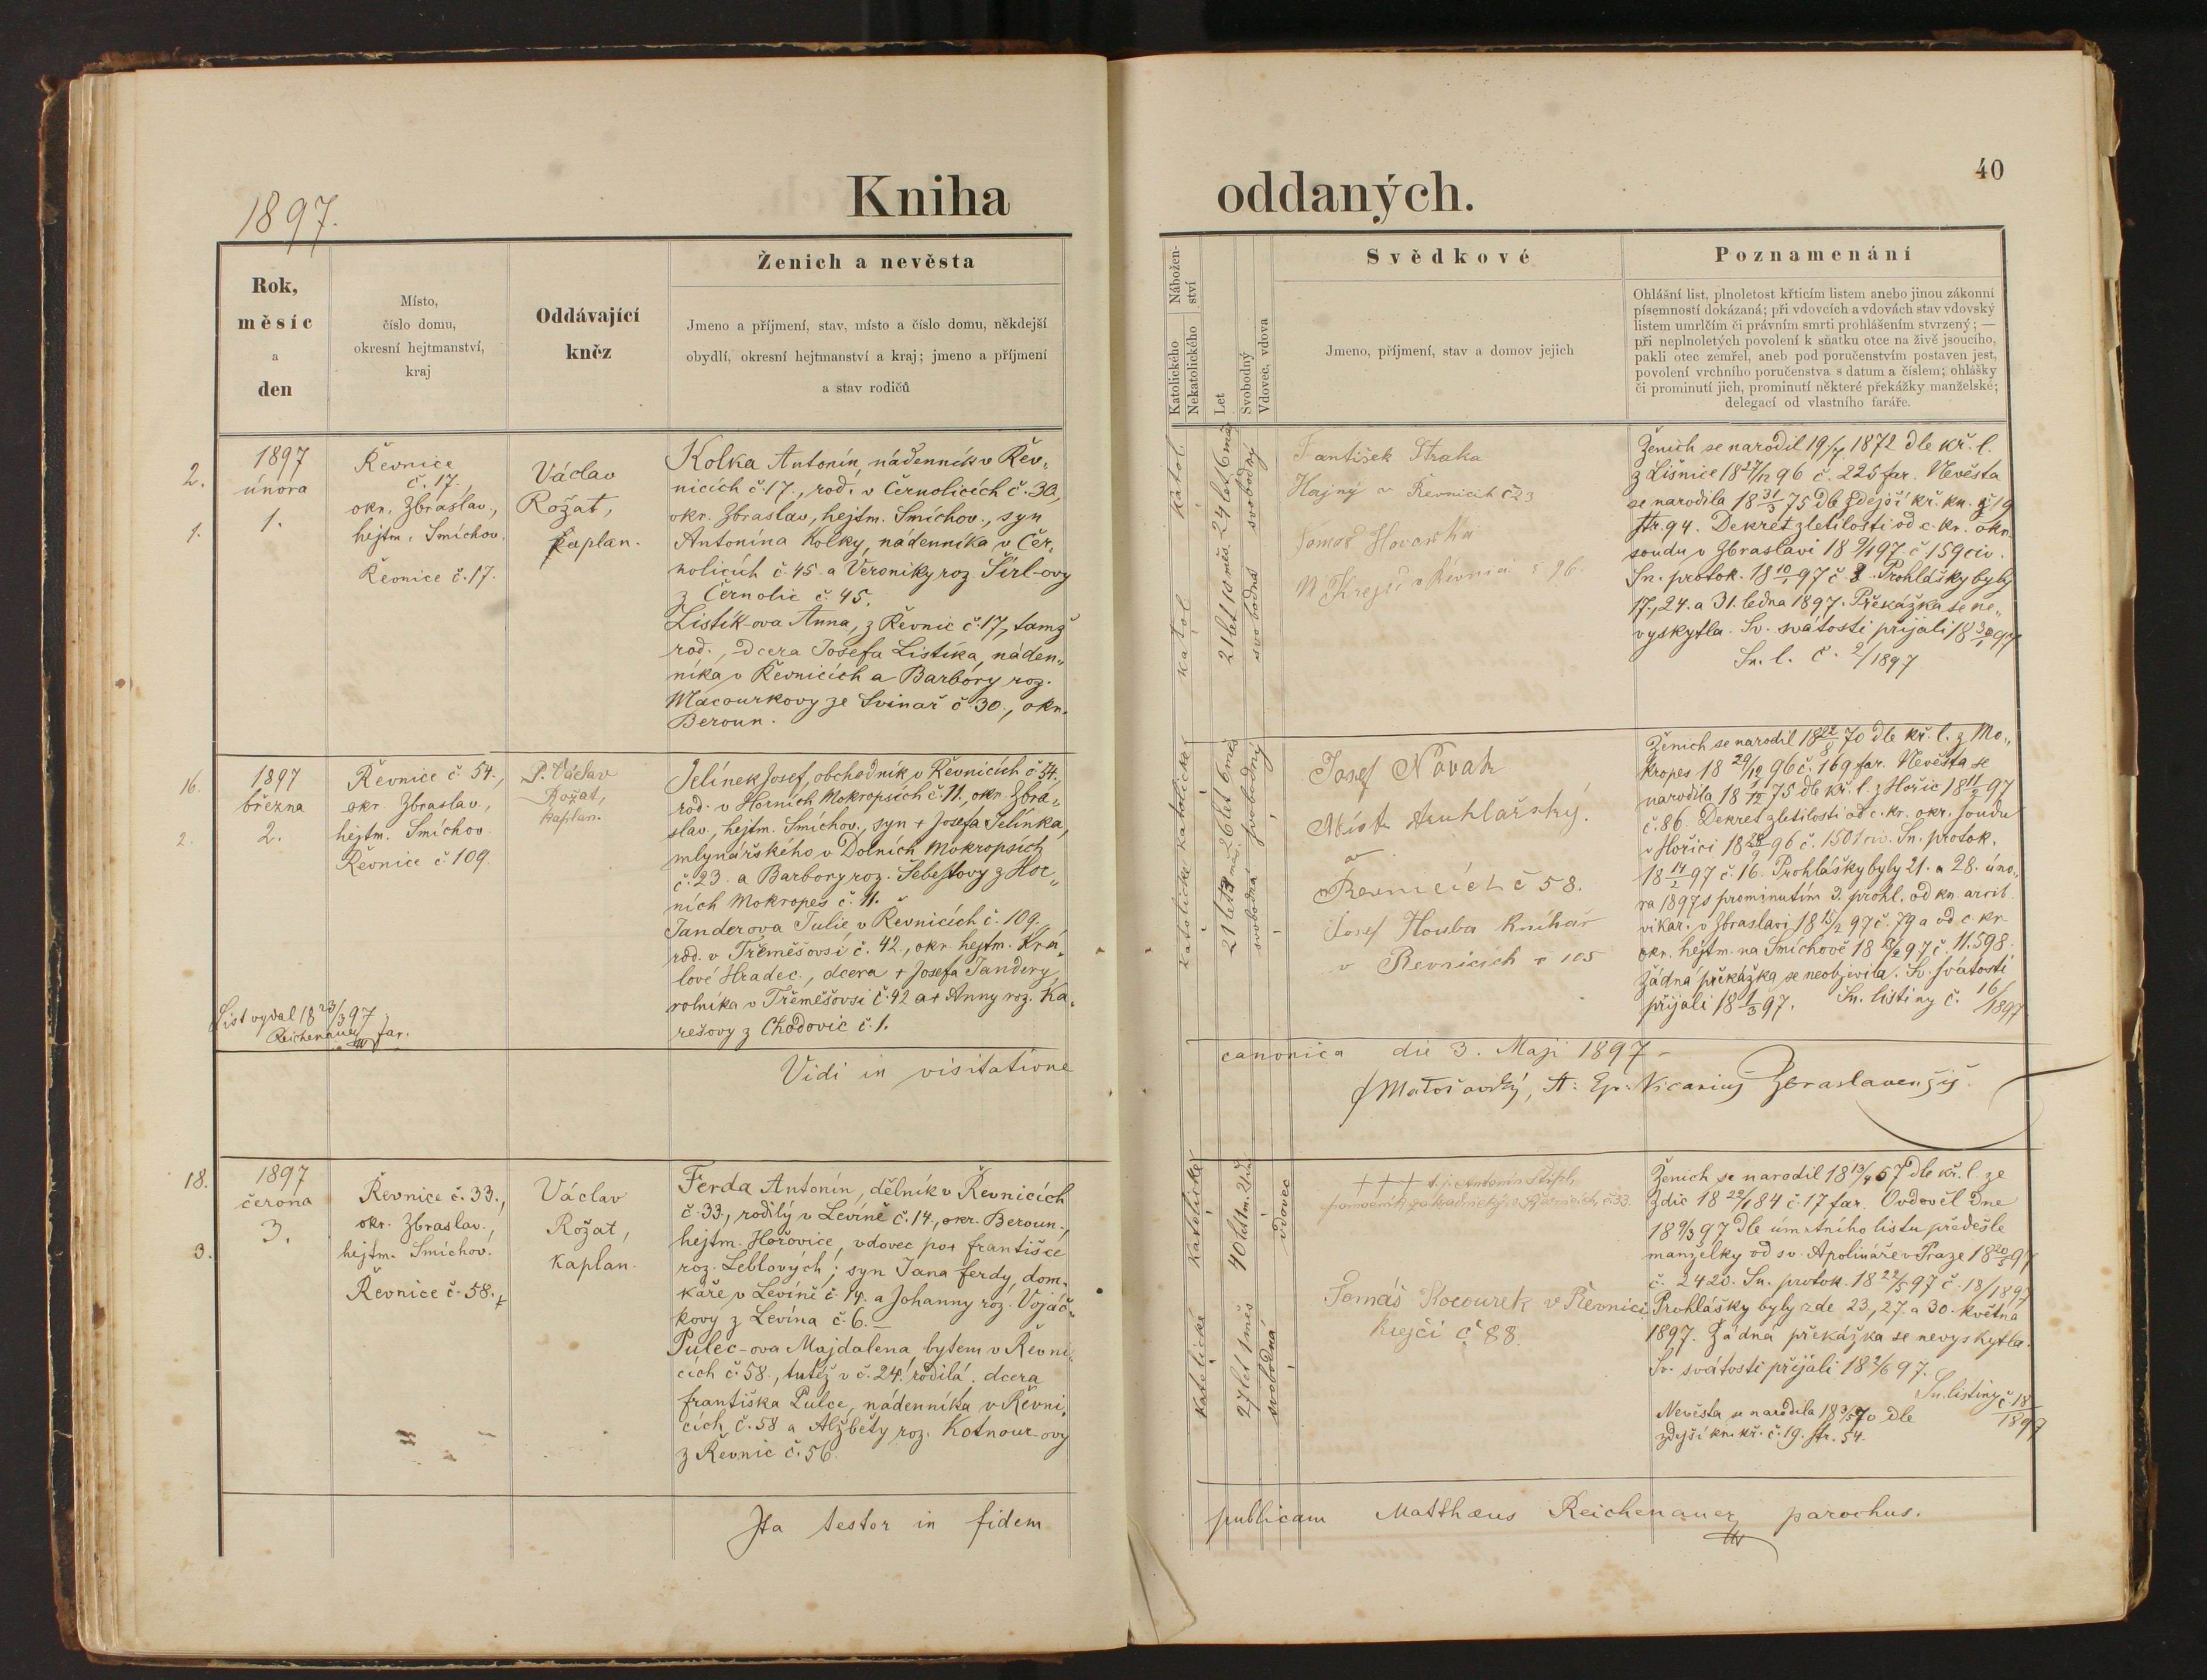 1897.
Kniha
Rok,
měsíc
a
den
Místo,
číslo domu,
okresní hejtmanství,
kraj
Oddávající
kněz
Ženich a nevěsta
Jmeno a příjmení, stav, místo a číslo domu, někdejší
obydlí, okresní hejtmanství a kraj; jmeno a příjmení
a stav rodičů
2.
1.
1897
února
1.
Řevnice
č. 17.,
okr. Zbraslav.,
hejtm. Smíchov.
Řevnice č. 17.
Václav
Rožat,
kaplan.
Kolka Antonín, nádenník v Řev„
nicích č. 17., rod. v Černolicích č. 30,
okr. Zbraslav, hejtm. Smíchov., syn
Antonína Kolky, nádenníka v Čer„
nolicích č. 45. a Veroniky roz. Širl-ovy
z Černolic č. 45.
Listík-ova Anna, z Řevnic č. 17, tamž
rod., dcera Josefa Listíka, náden„
níka v Řevnicích a Barbory roz.
Macourkovy ze Svinař č. 30., okr.
Beroun.
16.
2.
1897
března
2.
Řevnice č. 54.,
okr. Zbraslav,
hejtm. Smíchov.
Řevnice č. 109.
P. Václav
Rožat,
kaplan.
Jelínek Josef, obchodník v Řevnicích č. 54.,
rod. v Horních Mokropsích č. 11., okr. Zbra„
slav, hejtm. Smíchov., syn + Josefa Jelínka,
mlynářského v Dolních Mokropsích
č. 23. a Barbory roz. Šebestovy z Hor„
ních Mokropes č. 11.
Janderova Julie v Řevnicích č. 109.,
rod. v Třeměšovsi č. 42, okr. hejtm. Krá„
lové Hradec., dcera + Josefa Jandery,
rolníka v Třeměšovsi č. 42 a + Anny roz. Ka„
rešovy z Chodovic č. 1.
List vydal 18 23/3 97
Reichenauer far.
Vidi in visitatione
18.
3.
1897
června
3.
Řevnice č. 33.,
okr. Zbraslav.,
hejtm. Smíchov.
Řevnice č. 58.,
Václav
Rožat,
kaplan.
Ferda Antonín, dělník v Řevnicích
č. 33., rodilý v Levíně č. 14., okr. Beroun.,
hejtm. Hořovice, vdovec po + františce
roz. Leblových; syn Jana ferdy, dom„
káře v Levíně č. 14. a Johanny roz. Vojáč„
kovy z Levína č. 6. —
Pulec-ova Majdalena, bytem v Řevni„
cích č. 58., tutéž v č. 24. rodilá. dcera
františka Pulce, nádenníka v Řevni„
cích č. 58 a Alžběty roz. Kotnour-ovy
z Řevnic č. 56.
Ita testor in fidem
40
oddaných.
Nábožen-
ství
Katolického
Nekatolického
Let
Svobodný
Vdovec, vdova
Svědkové
Jmeno, příjmení, stav a domov jejich
Poznamenání
Ohlášní list, plnoletost křticím listem anebo jinou zákonní
písemností dokázaná; při vdovcích a vdovách stav vdovský
listem umrlčím či právním smrti prohlášením stvrzený; —
při neplnoletých povolení k sňatku otce na živě jsoucího,
pakli otec zemřel, aneb pod poručenstvím postaven jest,
povolení vrchního poručenstva s datum a číslem; ohlášky
či prominutí jich, prominutí některé překážky manželské;
delegací od vlastního faráře.
katol.
24 let 6 měs.
svobodný
katol
21 let 10 měs.
svobodná
František Straka
Hajný v Řevnicích č 23
Tomaš
Krejčí v Řevnici č 96.
Ženich se narodil 1872 dle kř. l.
z Lišnice 18 27/12 96 č. 225 far. Nevěsta
se narodila 18 31/3 75 dle zdejší kř. kn. č 19
str. 94. Dekret zletilosti od c. kr. okr.
soudu v Zbraslavi 18 9/1 97 č 159 civ.
Sn. protok. 18 10/1 97 č. 2. Prohlášky byly
17., 24. a 31. ledna 1897. Překážka se ne„
vyskytla. Sv. svátosti přijali 18 97
Sn. l. č. 2/1897
katolické
26 let 6 měs
svobodný
katolické
21 let 3 měs.
svobodná
Josef Novák
Mistr truhlářský.
v
Řevnicích č 58.
Josef Houba knihař
v Řevnicich č 105
Ženich se narodil 18 22/8 70 dle kř. l. z Mo„
kropes 18 29/12 96 č. 169 far. Nevěsta se
narodila 18 1/12 75 dle kř. l. z Hořic 18 11/2 97
č. 86. Dekret zletilosti od c. kr. okr. soudu
v Hořici 18 96 č. 1501 civ. Sn. protok.
18 14/2 97 č. 16. Prohlášky byly 21. a 28. úno„
ra 1897 s prominutím 3. prohl. od kn. arcib.
vikar. v Zbraslavi 18 15/2 97 č. 79 a od c. kr.
okr. hejtm. na Smíchově 18 97 č. 11.598.
Žádná překážka se neobjevila. Sv. svátosti
přijali 18 1/3 97. Sn. listiny č. 16/1897
canonica die 3. Maji 1897 –
Matoušovský, A: Ep: Vicarius Zbraslavensis.
katolické
40 let 1 m. 21 d.
vdovec
katolické
27 let 1 měs
svobodná
+ + + t. j. Antonín
v Řevnicích, č. 33.
Tomáš Kocourek v Řevnici
krejčí č 88.
Ženich se narodil 18 13/4 57 dle kř. l. ze
Zdic 18 22/1 84 č 17 far. Ovdověl dne
18 9/3 97 dle úmrtního listu předešlé
manželky od sv. Apolináře v Praze 18 20/5 97
č. 2420. Sn. protok. 18 22/5 97 č. 18/1897
Prohlášky byly zde 23., 27. a 30. května
1897. Žádná překážka se nevyskytla.
Sv. svátosti přijali 18 2/6 97.
Sn. listiny č 18/1897
Nevěsta se narodila 18 70 dle
zdejší kn. kř. č. 19. str. 54.
publicam Matthæus Reichenauer parochus.